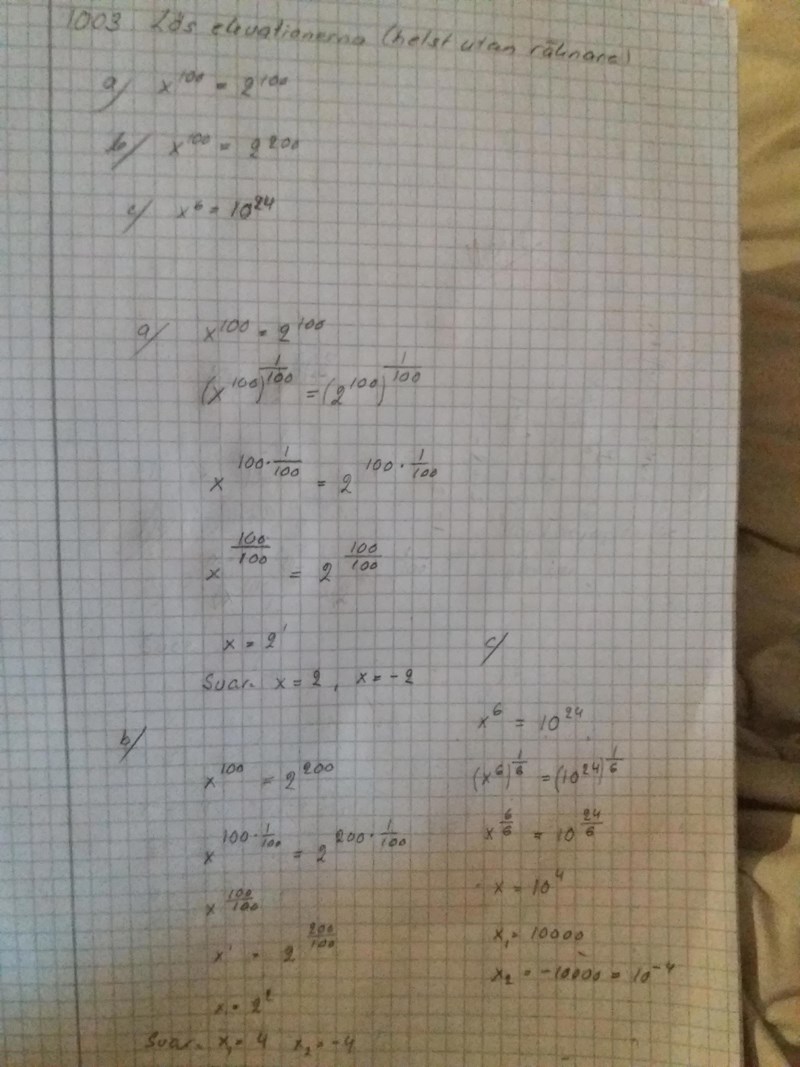 1003 Lös ekvationerna (helst utan räknare)
a/ x^100 = 2^100
b/ x^100 = 2^200
c/ x^6 = 10^24
a/ x^100 = 2^100
(x^100)^(1/100) = (2^100)^(1/100)
x^(100·1/100) = 2^(100·1/100)
x^(100/100) = 2^(100/100)
x = 2^1
Svar. x = 2, x = -2
b/
x^100 = 2^200
x^(100·1/100) = 2^(200·1/100)
x^(100/100)
x^1 = 2^(200/100)
x = 2^2
Svar. x₁ = 4 x₂ = -4
c/
x^6 = 10^24
(x^6)^(1/6) = (10^24)^(1/6)
x^(6/6) = 10^(24/6)
x = 10^4
x₁ = 10000
x₂ = -10000 = 10^-4